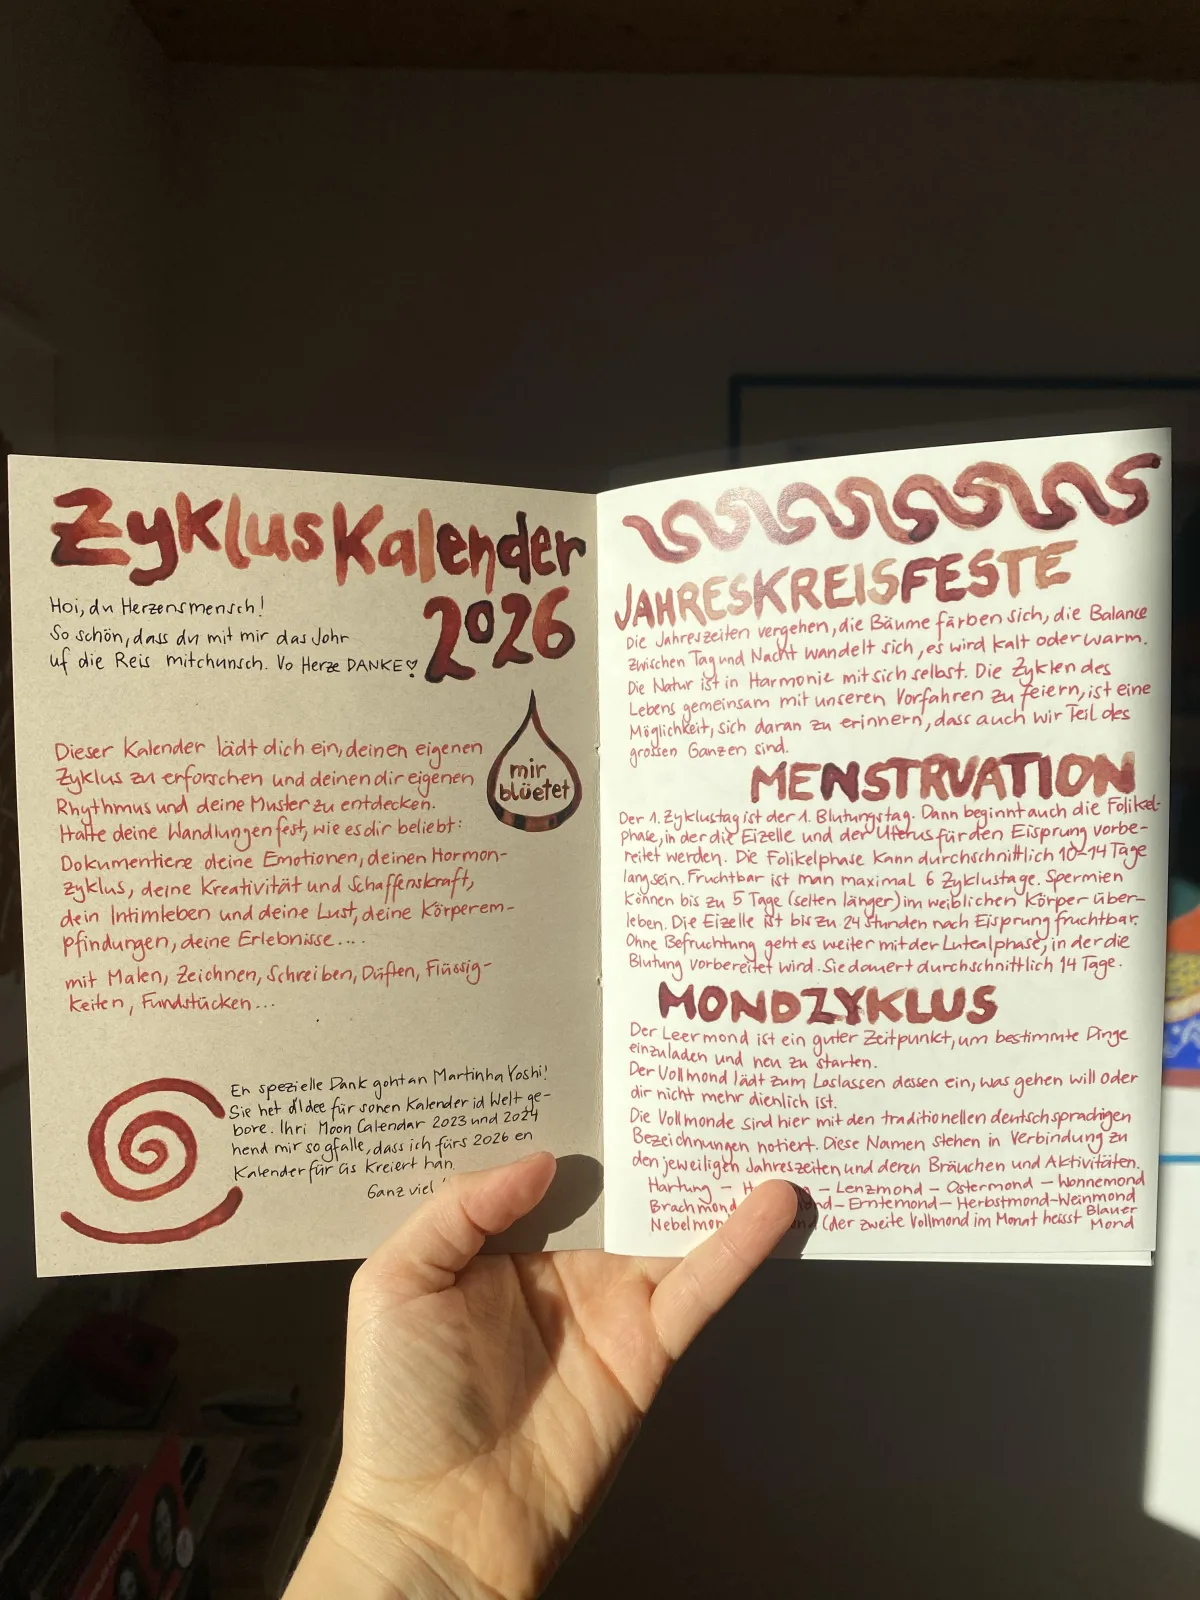 ZyklusKalender
2026
Hoi, du Herzensmensch!
So schön, dass du mit mir das Johr
uf die Reis mitchunsch. Vo Herze DANKE♡
mir
blüetet
Dieser Kalender lädt dich ein, deinen eigenen
Zyklus zu erforschen und deinen dir eigenen
Rhythmus und deine Muster zu entdecken.
Halte deine Wandlungen fest, wie es dir beliebt:
Dokumentiere deine Emotionen, deinen Hormon-
zyklus, deine Kreativität und Schaffenskraft,
dein Intimleben und deine Lust, deine Körperem-
pfindungen, deine Erlebnisse....
mit Malen, Zeichnen, Schreiben, Düften, Flüssig-
keiten, Fundstücken...
En spezielle Dank goht an Martinha Yoshi!
Sie het d'Idee für sonen Kalender id Welt ge-
bore. Ihri Moon Calendar 2023 und 2024
hend mir so gfalle, dass ich fürs 2026 en
Kalender für üs kreiert han.
Ganz viel
JAHRESKREISFESTE
Die Jahreszeiten vergehen, die Bäume färben sich, die Balance
zwischen Tag und Nacht wandelt sich, es wird kalt oder warm.
Die Natur ist in Harmonie mit sich selbst. Die Zyklen des
Lebens gemeinsam mit unseren Vorfahren zu feiern, ist eine
Möglichkeit, sich daran zu erinnern, dass auch wir Teil des
grossen Ganzen sind.
MENSTRUATION
Der 1. Zyklustag ist der 1. Blutungstag. Dann beginnt auch die Folikel-
phase, in der die Eizelle und der Uterus für den Eisprung vorbe-
reitet werden. Die Folikelphase kann durchschnittlich 10-14 Tage
lang sein. Fruchtbar ist man maximal 6 Zyklustage. Spermien
können bis zu 5 Tage (selten länger) im weiblichen Körper über-
leben. Die Eizelle ist bis zu 24 Stunden nach Eisprung fruchtbar.
Ohne Befruchtung geht es weiter mit der Lutealphase, in der die
Blutung vorbereitet wird. Sie dauert durchschnittlich 14 Tage.
MONDZYKLUS
Der Leermond ist ein guter Zeitpunkt, um bestimmte Dinge
einzuladen und neu zu starten.
Der Vollmond lädt zum Loslassen dessen ein, was gehen will oder
dir nicht mehr dienlich ist.
Die Vollmonde sind hier mit den traditionellen deutschsprachigen
Bezeichnungen notiert. Diese Namen stehen in Verbindung zu
den jeweiligen Jahreszeiten und deren Bräuchen und Aktivitäten.
Hartung – – Lenzmond – Ostermond – Wonnemond
Brachmond – Erntemond – Herbstmond – Weinmond
(der zweite Vollmond im Monat heisst Blauer
Mond